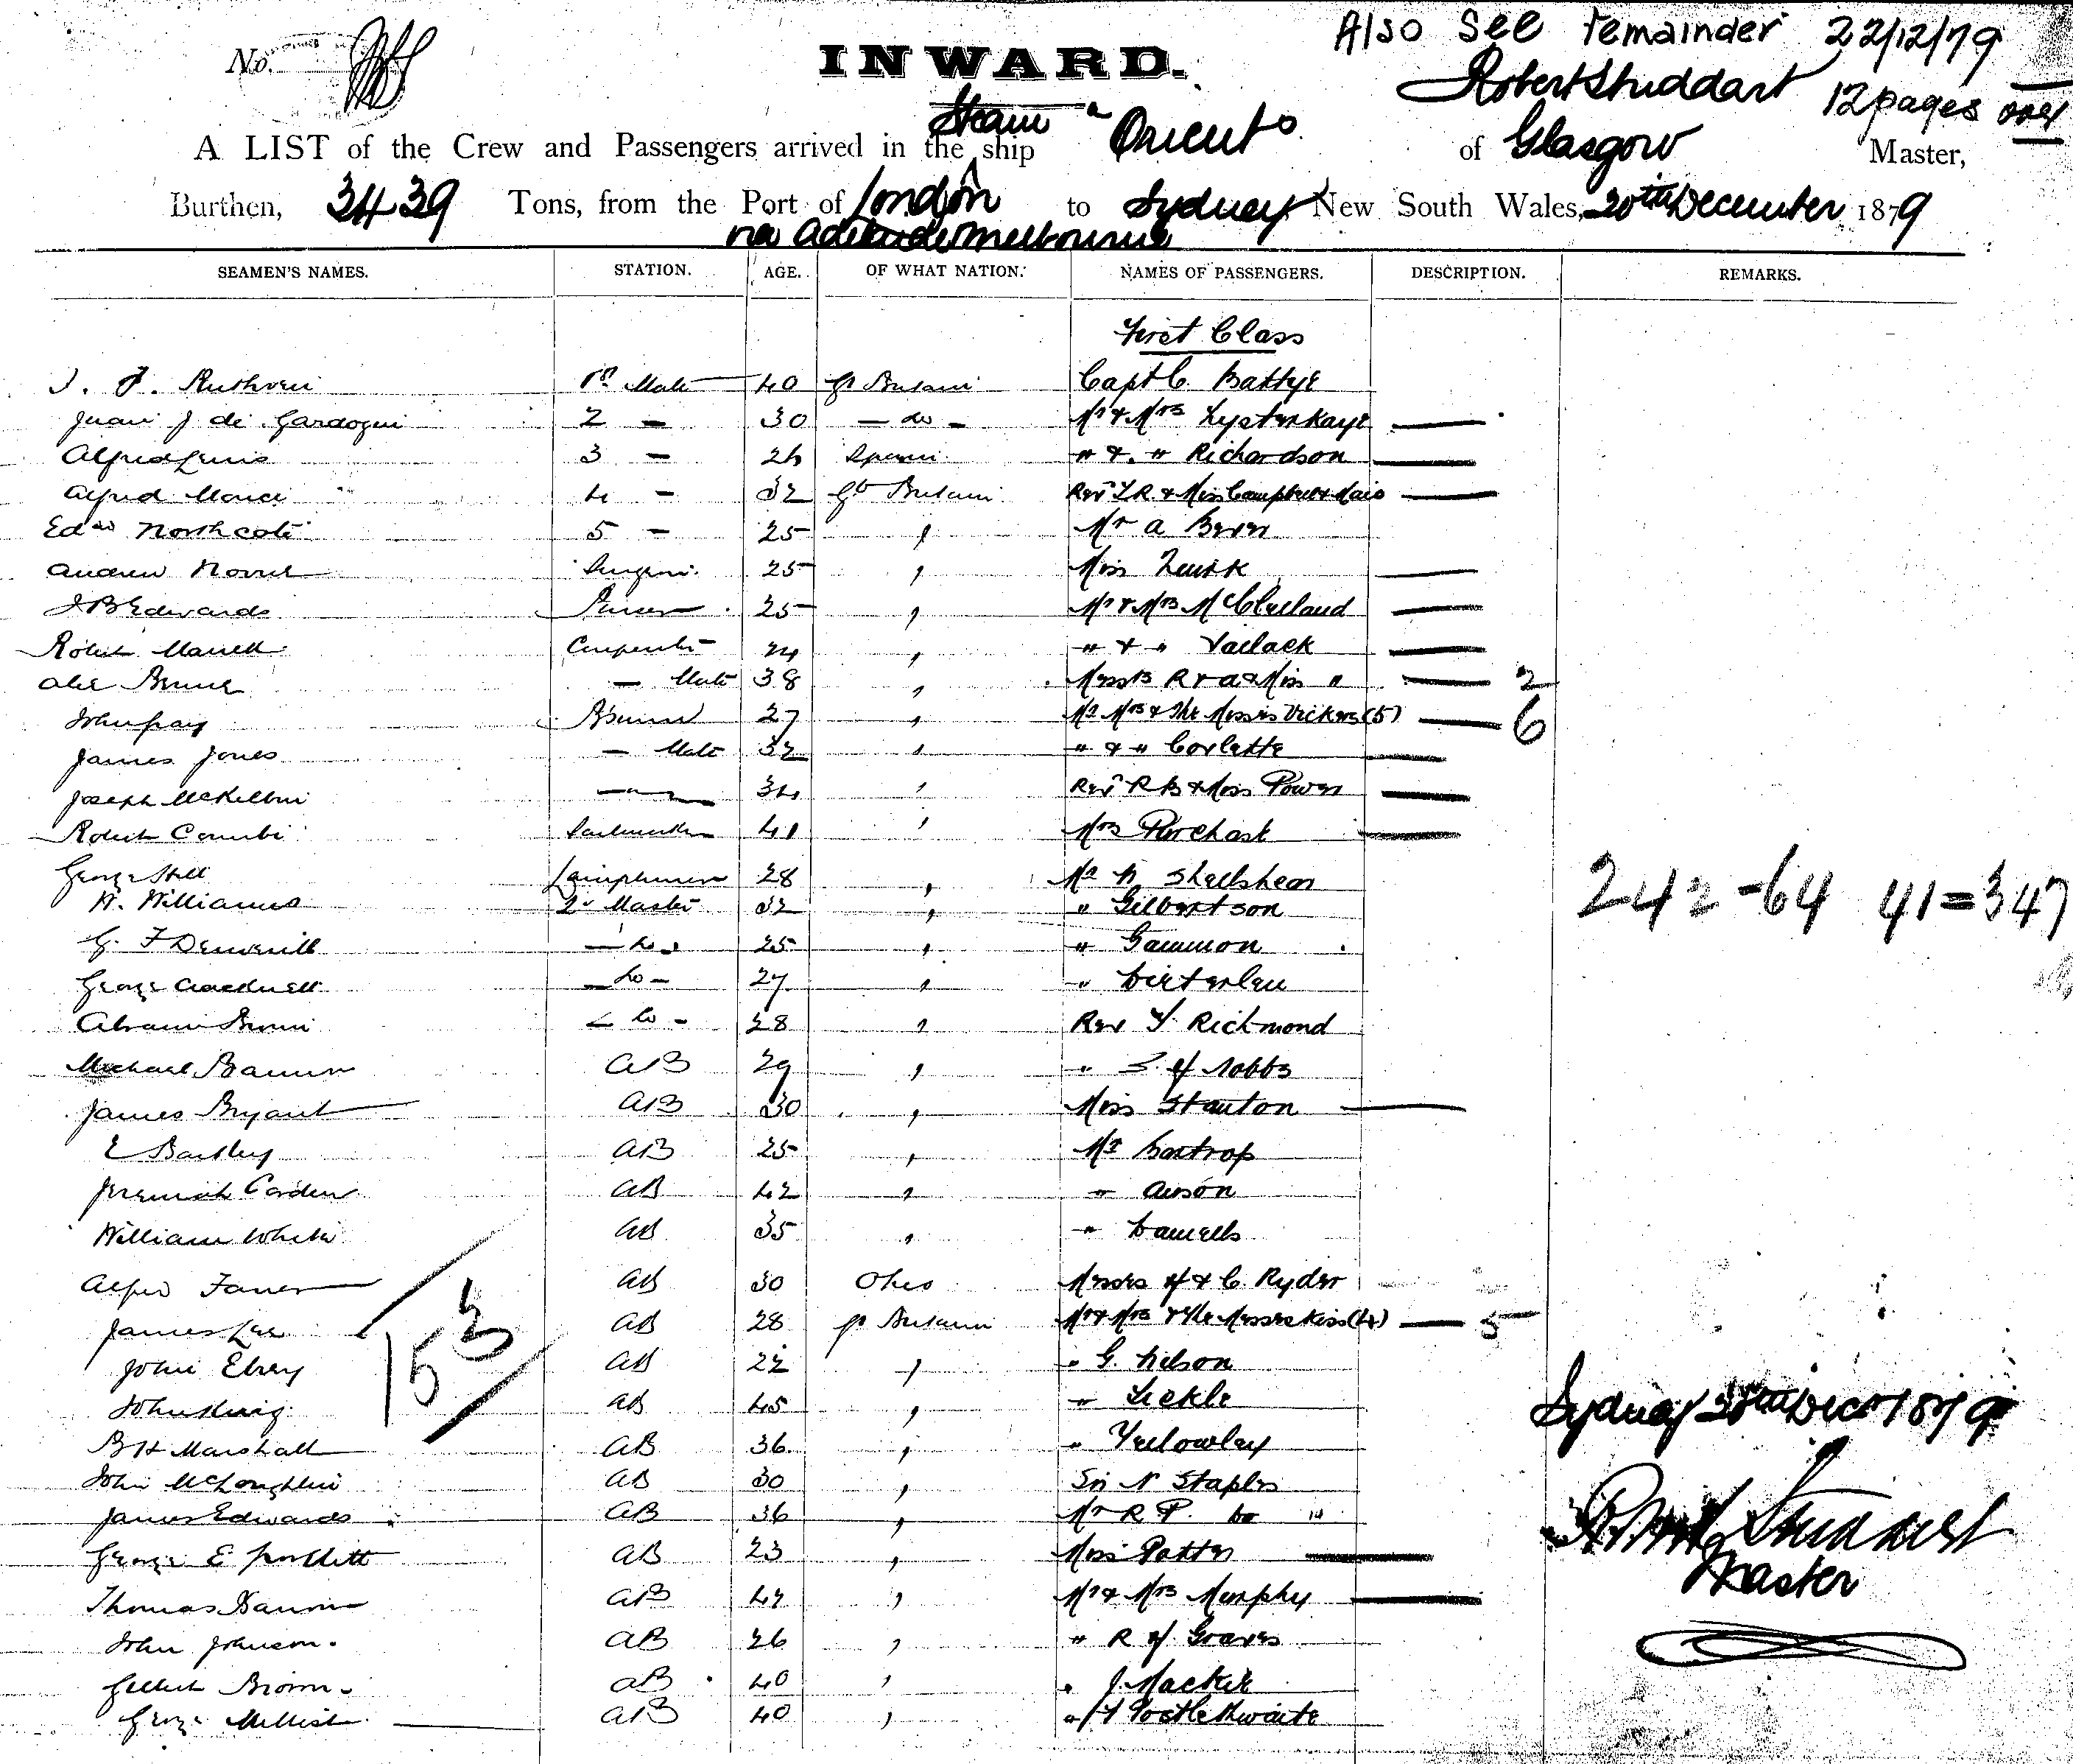 Also see remainder 22/12/79
No.
INWARD.
Robert Studdart 12 pages over
Steam "Orient"
A LIST of the Crew and Passengers arrived in the ship of Glasgow Master,
Burthen, 3439 Tons, from the Port of London to Sydney New South Wales, 20th December 1879
via Adelaide Melbourne
SEAMEN'S NAMES. STATION. AGE. OF WHAT NATION. NAMES OF PASSENGERS. DESCRIPTION. REMARKS.
First Class
J. F. Ruthven 1st Mate 40 Gt Britain Capt C. Battye
Juan J de Gardoqui 2 — 30 — do — Mr & Mrs Lyster Kaye
Alfred Lewis 3 — 26 Spain " & " Richardson
Alfred 4 — 32 Gt Britain Revd & Miss Campbell & Maid
Edwd Northcote 5 — 25 " Mr A
Andrew Surgeon 25 " Miss
J B Edwards Purser 25 " Mr & Mrs McClelland
Robert Carpenter 24 " " & " Vallack
Alex Bruce — Mate 38 " Messrs R & A & Miss " 2
John Gray Bosun 27 " Mr Mrs & The Misses Vickers (5) 6
James Jones — Mate 32 " " & " Corlette
Joseph McKelvin — " — 34 " Revd R B & Miss Power
Robert Combe Sailmaker 41 " Mrs Purchase
George Hill Lampman 28 " Mr N Shellshear
W. Williams Qr Master 32 " " Gilbertson
242 - 64 41 = 347
G. F — do — 25 " " Gammon
George Cracknell — do — 27 " "
Abram Brown — do — 28 " Rev Richmond
Michael AB 29 " " Nobbs
James Bryant AB 30 " Miss Stanton
E Bartley AB 25 " Mr Bartrop
Jeremiah Carden AB 42 " "
William White AB 35 " " Daniells
Alfred AB 30 Ohio Messrs H & C Ryder
James Lee AB 28 Gt Britain Mr & Mrs & The Misses Kiss (4) 5
153
John Elvey AB 22 " " G. Nelson
John King AB 45 " "
Sydney 20th Decr 1879
B H Marshall AB 36 " " Yellowley
John McLoughlin AB 30 " Sir N Staples
James Edwards AB 36 " Mr R P. do "
Robert Studdart
Master
George E AB 23 " Miss Potter
Thomas AB 47 " Mr & Mrs Murphy
John Johnson AB 26 " " R H Graves
Gilbert Brown AB 40 " " J. Mackie
George Mellish AB 40 " " Postlethwaite